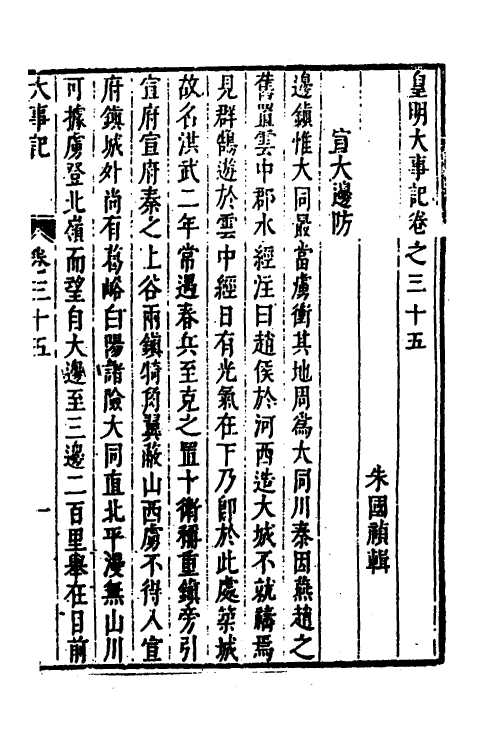 皇明大事記卷之三十五
朱國禎輯
宣大邊防
邊鎮惟大同最當虜衝其地周為大同川秦因燕趙之
舊置雲中郡水經注曰趙侯於河西造大城不就禱焉
見群鵠遊於雲中經日有光氣在下乃卽於此處築城
故名洪武二年常遇春兵至克之置十衛稱重鎮旁引
宣府宣府秦之上谷兩鎮犄角翼蔽山西虜不得入宣
府鎮城外尚有葛峪白陽諸險大同直北平漫無山川
可據虜登北嶺而望自大邊至三邊二百里舉在目前
大事記 卷三十五 一